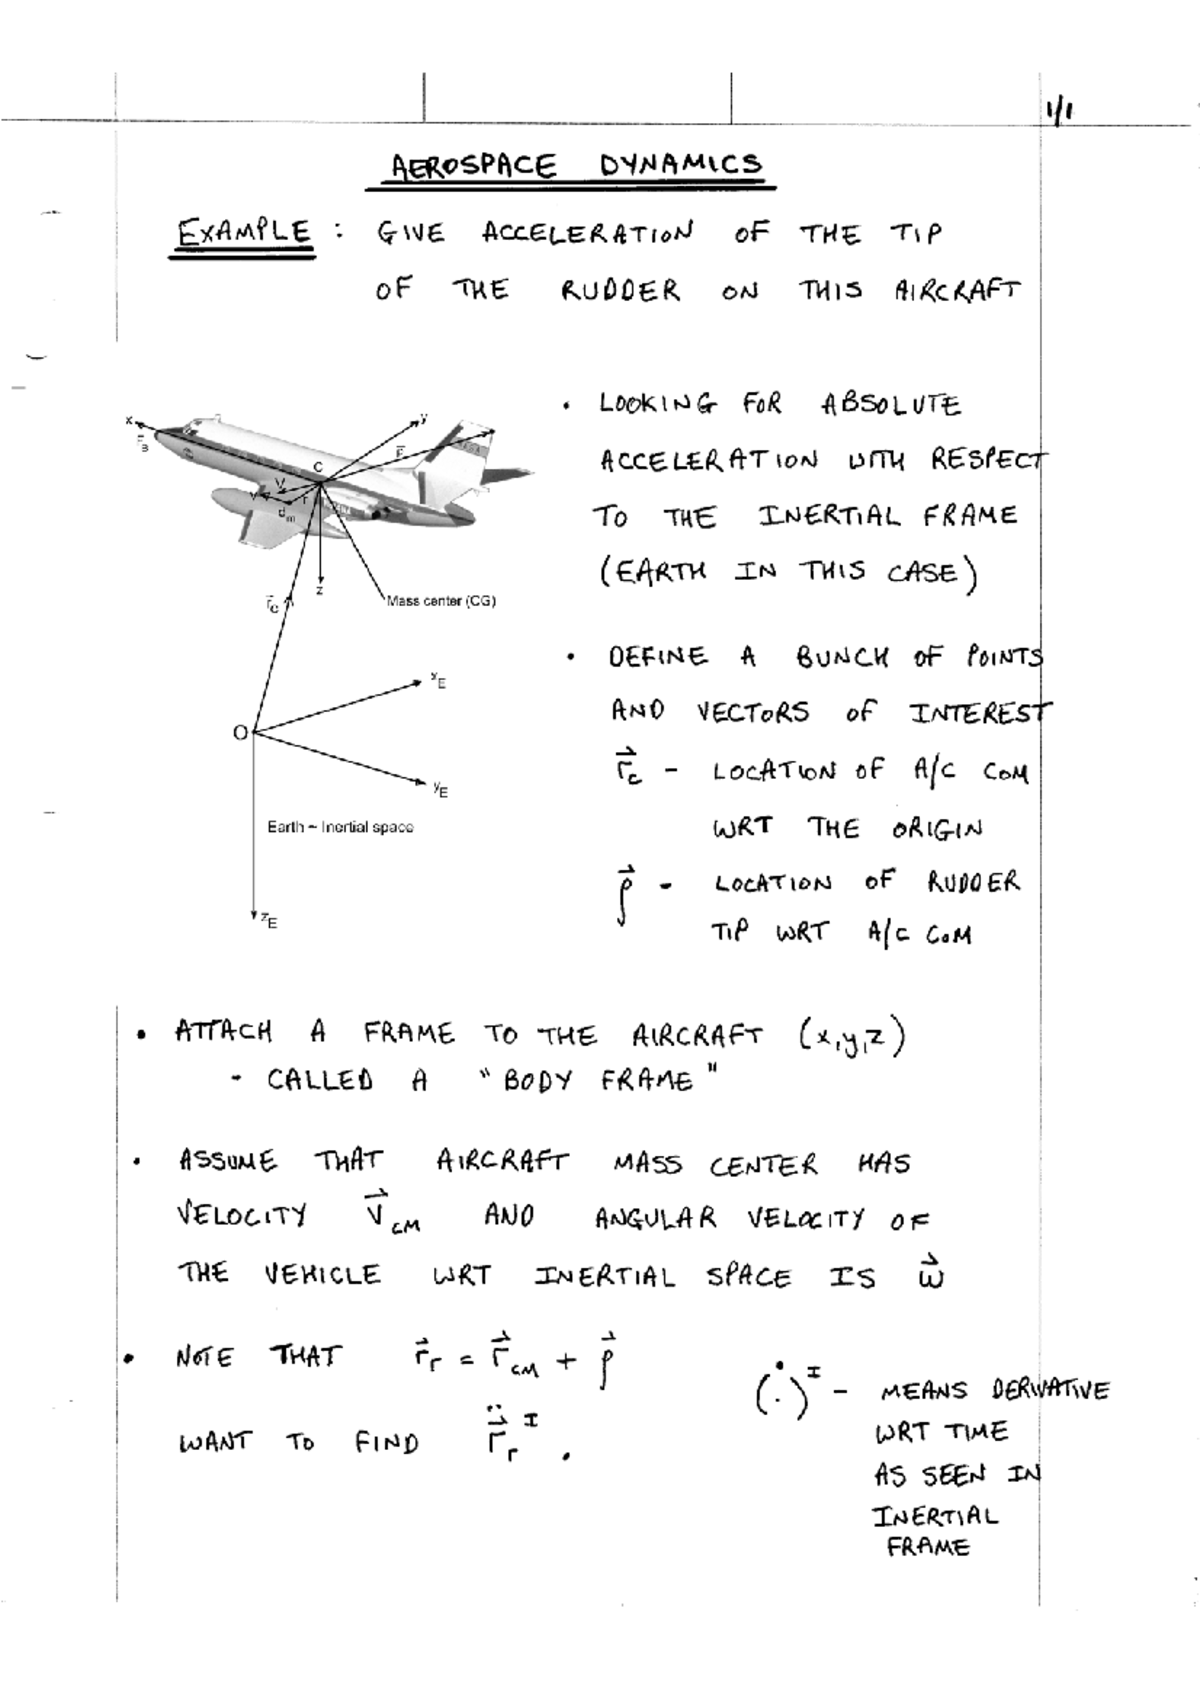 1/1
AEROSPACE DYNAMICS
EXAMPLE : GIVE ACCELERATION OF THE TIP
OF THE RUDDER ON THIS AIRCRAFT
x
y
C
V
r
d_m
z
r⃗_C
Mass center (CG)
x_E
O
y_E
Earth ~ Inertial space
z_E
• LOOKING FOR ABSOLUTE
ACCELERATION WITH RESPECT
TO THE INERTIAL FRAME
(EARTH IN THIS CASE)
• DEFINE A BUNCH OF POINTS
AND VECTORS OF INTEREST
r⃗_c - LOCATION OF A/C COM
WRT THE ORIGIN
ρ⃗ - LOCATION OF RUDDER
TIP WRT A/C COM
• ATTACH A FRAME TO THE AIRCRAFT (x,y,z)
- CALLED A "BODY FRAME"
• ASSUME THAT AIRCRAFT MASS CENTER HAS
VELOCITY V⃗_CM AND ANGULAR VELOCITY OF
THE VEHICLE WRT INERTIAL SPACE IS ω⃗
• NOTE THAT r⃗_r = r⃗_CM + ρ⃗
WANT TO FIND r⃗̈_r^I .
(·)̇^I - MEANS DERIVATIVE
WRT TIME
AS SEEN IN
INERTIAL
FRAME